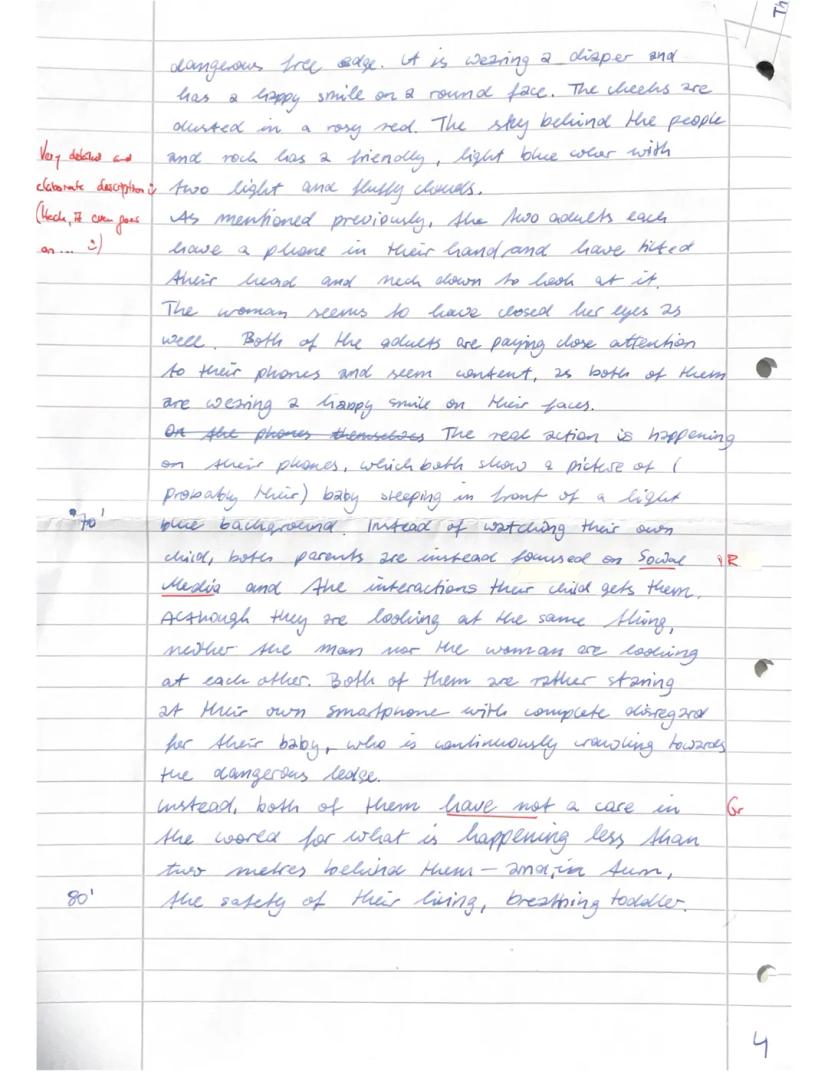 Th
dangerous free edge. It is wearing a diaper and
has a happy smile on a round face. The cheeks are
dusted in a rosy red. The sky behind the people
Very detailed and
and rock has a friendly, light blue color with
elaborate description :)
two light and fluffy clouds.
(Heck, it even goes
As mentioned previously, the two adults each
on... :)
have a phone in their hand, and have tilted
their head and neck down to look at it.
The woman seems to have closed her eyes as
well. Both of the adults are paying close attention
to their phones and seem content, as both of them
are wearing a happy smile on their faces.
On the phones themselves The real action is happening
on their phones, which both show a picture of (
probably their) baby sleeping in front of a light
70'
blue background. Instead of watching their own
child, both parents are instead focused on Social
R
Media and the interactions their child gets them.
Although they are looking at the same thing,
neither the man nor the woman are looking
at each other. Both of them are rather staring
at their own smartphone with complete disregard
for their baby, who is continuously crawling towards
the dangerous ledge.
Instead, both of them have not a care in
Gr
the world for what is happening less than
two metres behind them – and, in turn,
80'
the safety of their living, breathing toddler.
4